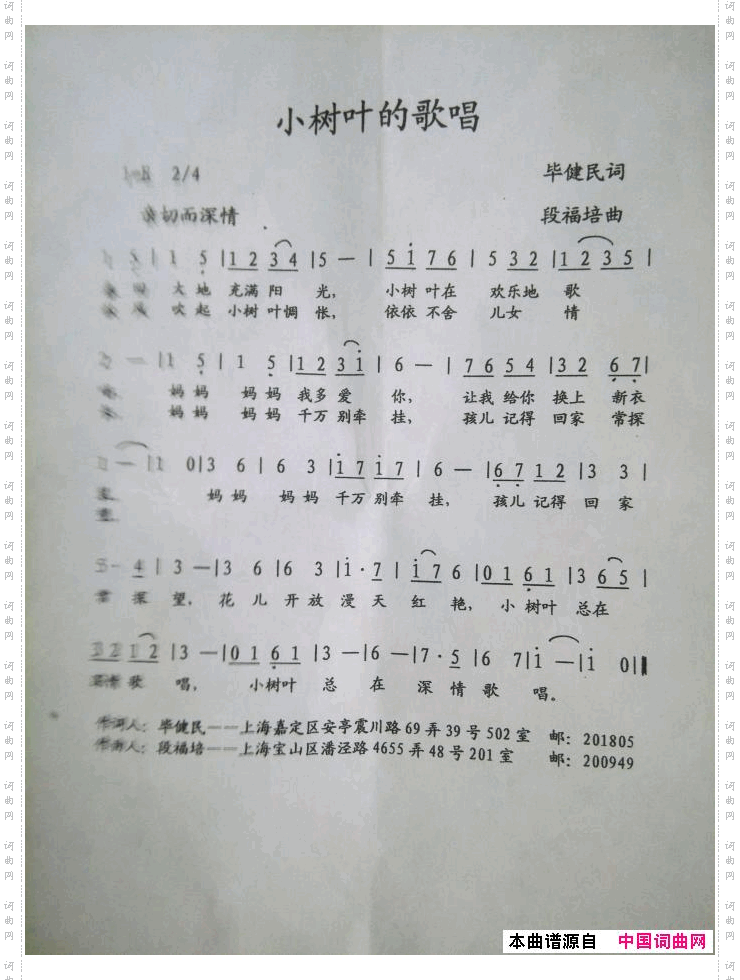 小树叶的歌唱
2/4 毕健民词
切而深情 段福培曲
5 | 1 5 | 1 2 3 4 | 5 — | 5 1 7 6 | 5 5 3 2 | 1 2 3 5 |
大 地 充满 阳 光, 小树 叶在 欢乐地 歌
吹 起 小树 叶惆 怅, 依依 不舍 儿女 情
— | 1 5 | 1 5 | 1 2 3 1 | 6 — | 7 6 5 4 | 3 2 6 7 |
妈妈 妈妈 我多 爱 你, 让我 给你 换上 新衣
妈妈 妈妈 千万 别牵 挂, 孩儿 记得 回家 常探
— | 1 0 | 3 6 | 6 3 | 1 7 1 7 | 6 — | 6 7 1 2 | 3 3 |
妈妈 妈妈 千万 别牵 挂, 孩儿 记得 回 家
4 | 3 — | 3 6 | 6 3 | 1 · 7 | 1 7 6 | 0 1 6 1 | 3 6 5 |
探 望, 花 儿 开 放 漫 天 红 艳, 小 树叶 总在
3 2 1 2 | 3 — | 0 1 6 1 | 3 — | 6 — | 7 · 5 | 6 7 | 1 — | 1 0 ‖
歌 唱, 小树叶 总 在 深 情 歌 唱。
作词人: 毕健民——上海嘉定区安亭震川路 69 弄 39 号 502 室 邮: 201805
作曲人: 段福培——上海宝山区潘泾路 4655 弄 48 号 201 室 邮: 200949
本曲谱源自 中国词曲网